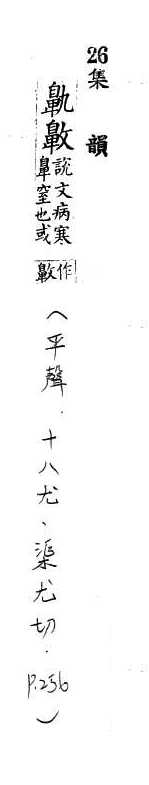 26集韻
鼽 說文病寒鼻窒也或作 (平聲.十八尤、渠尤切.p.256)